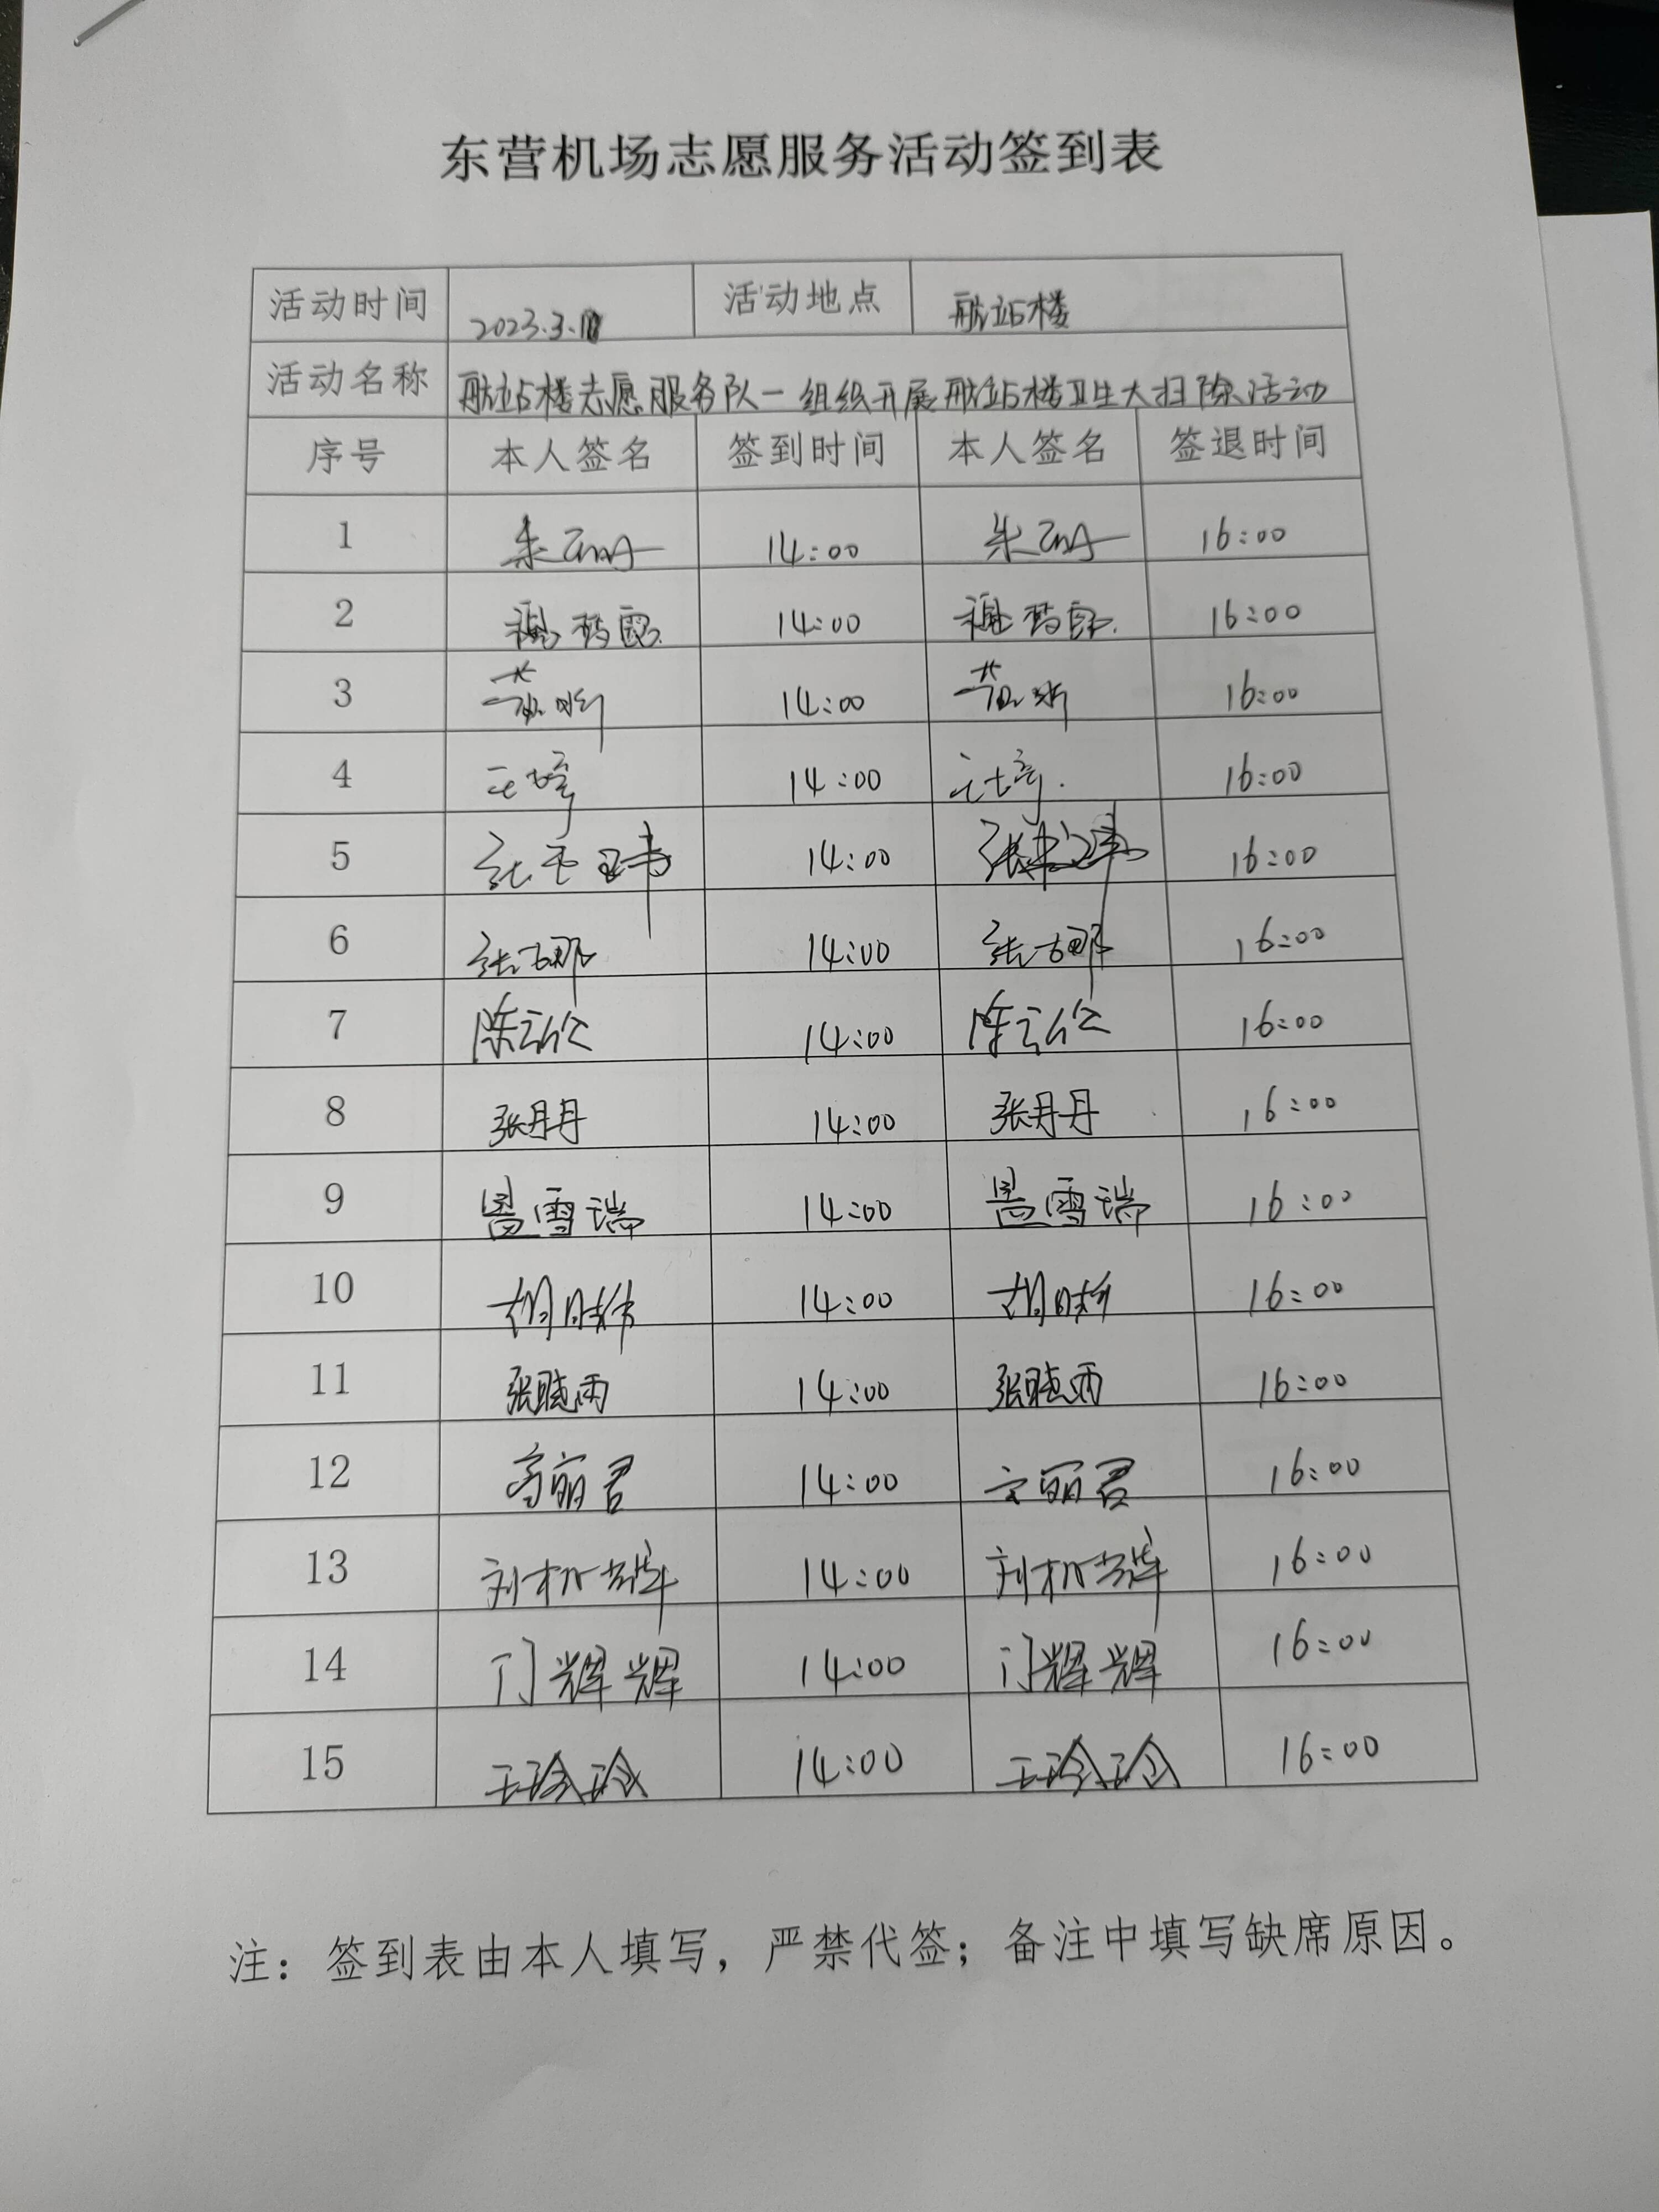 东营机场志愿服务活动签到表
活动时间 2023.3. 活动地点 航站楼
活动名称 航站楼志愿服务队一组织开展航站楼卫生大扫除活动
序号 本人签名 签到时间 本人签名 签退时间
1 朱 14:00 朱 16:00
2 14:00 16:00
3 14:00 16:00
4 14:00 16:00
5 张 14:00 张 16:00
6 张娜 14:00 张娜 16:00
7 陈 14:00 陈 16:00
8 张丹丹 14:00 张丹丹 16:00
9 雪瑞 14:00 雪瑞 16:00
10 胡 14:00 胡 16:00
11 张晓雨 14:00 张晓雨 16:00
12 高丽君 14:00 高丽君 16:00
13 刘 14:00 刘 16:00
14 门辉辉 14:00 门辉辉 16:00
15 王玲玲 14:00 王玲玲 16:00
注：签到表由本人填写，严禁代签；备注中填写缺席原因。